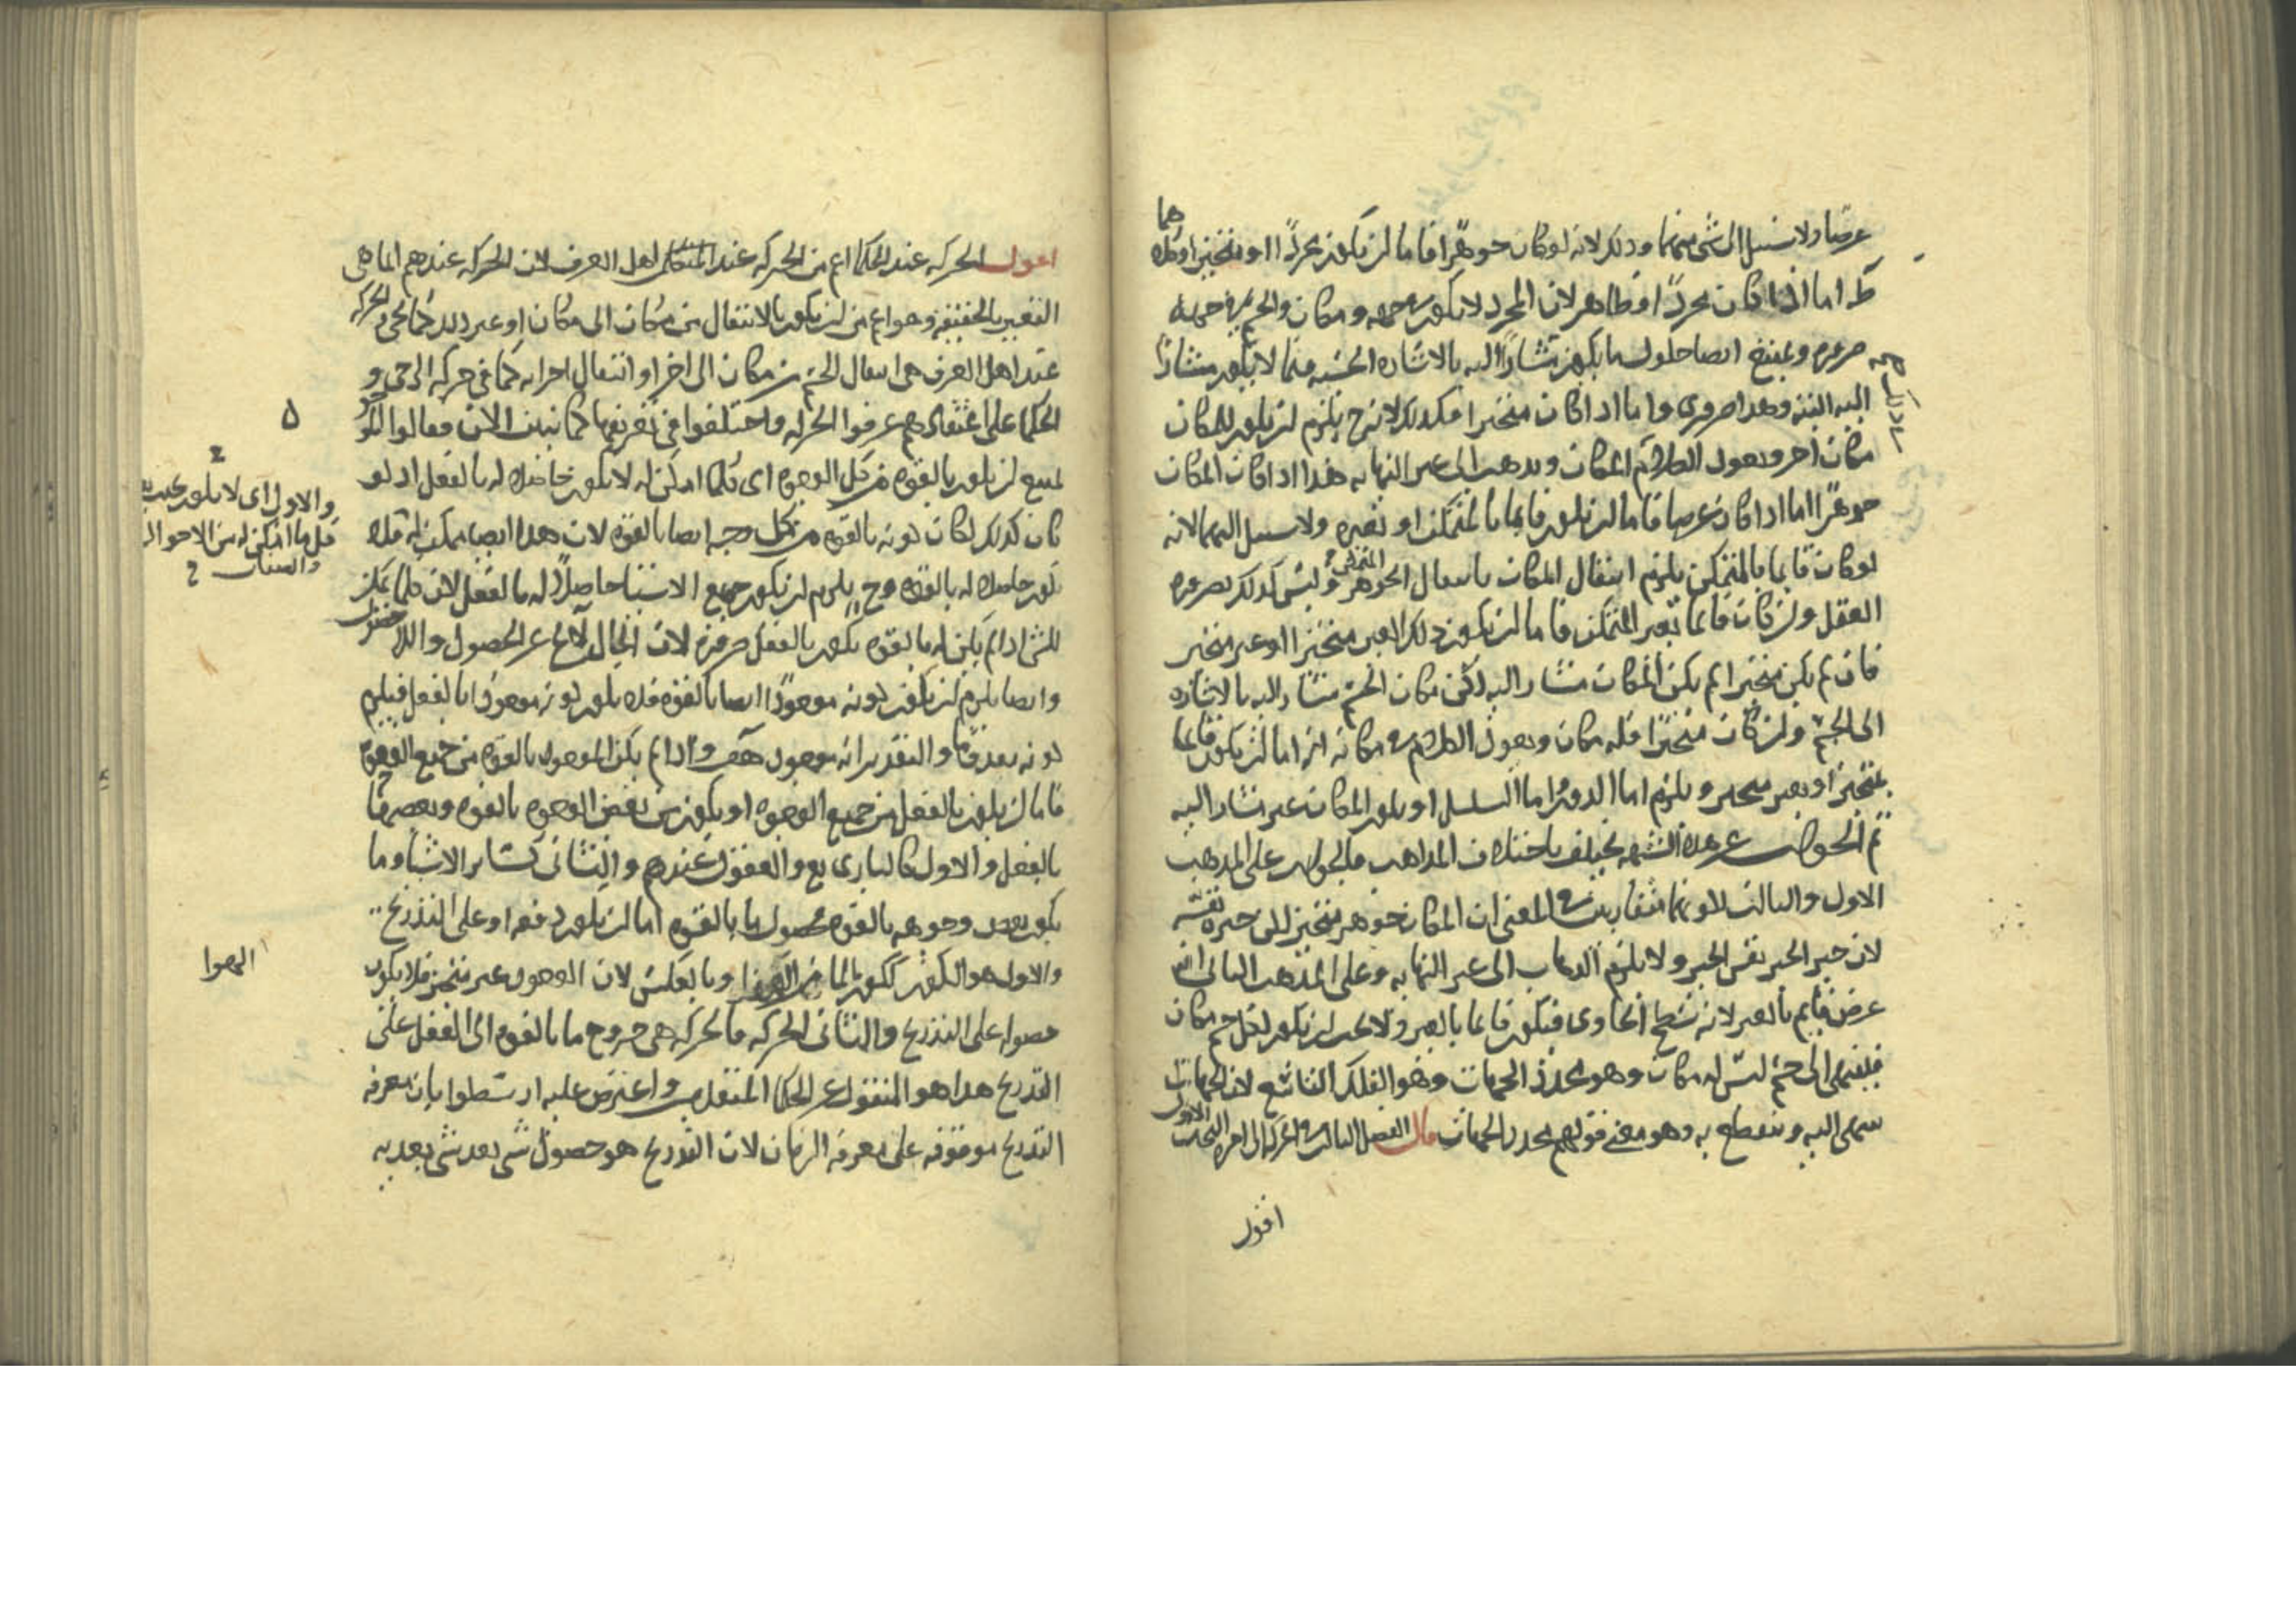 عرضا ولا سبيل الى شى منهما وذلك لانه لو كان جوهرا فاما ان يكون مجردا او متحيزا وكلاهما
اما اذا كان مجردا فظاهر لان المجرد لا يكون جهة ومكان والجسم فى جهة
ضرورة ويمتنع ايضا حلول ما يكون مشارا اليه بالاشارة الحسية فيما لا يكون مشارا
اليه البتة وهذا ضرورى واما اذا كان متحيزا فكذلك لانه ح يلزم ان يكون للمكان
مكان اخر ويعود الكلام المكان ويذهب الى غير النهاية هذا اذا كان المكان
جوهرا اما اذا كان عرضا فاما ان يكون قايما بالمتمكن او بغيره ولا سبيل اليهما لانه
لو كان قايما بالمتمكن يلزم انتقال المكان بانتقال الجوهر المتمكن وليس كذلك بضرورة
العقل وان كان قايما بغير المتمكن فاما ان يكون ذلك الغير متحيزا او غير متحيز
فان لم يكن متحيزا لم يكن المكان مشارا اليه لكن مكان الجسم مشار اليه بالاشارة
الى الجسم وان كان متحيزا فله مكان ويعود الكلام فى مكانه انه اما ان يكون قايما
بمتحيز او بغير متحيز ويلزم اما الدور واما التسلسل او يكون المكان غير مشار اليه
ثم الجواب عن هذه الشبهة يختلف باختلاف المذاهب فالجواب على المذهب
الاول والثالث لكونهما متقاربين فى المعنى ان المكان جوهر متحيز لكن حيزه نفسه
لان حيز الحيز نفس الحيز ولا يلزم الذهاب الى غير النهاية وعلى المذهب الثانى انه
عرض قايم بالغير لانه سطح الحاوى فيكون قايما بالغير ولا يجب ان يكون لكل جسم مكان
فينتهى الى جسم ليس له مكان وهو محدد الجهات وهو الفلك التاسع لان الجهات
تنتهى اليه وتنقطع به وهو معنى قولهم محدد الجهات قال الفصل الثالث فى الحركة البحث الاول
اقول
اقول الحركة عند الحكما اعم من الحركة عند المتكلمين اهل العرف لان الحركة عندهم انما هى
التغير بالحقيقة وهو اعم من ان يكون بالانتقال من مكان الى مكان او غير ذلك كما يجى والحركة
عند اهل العرف هى انتقال الجسم من مكان الى اخر او انتقال اجزائه كما فى حركة الرحى و
الحكما على اعتقادهم عرفوا الحركة واختلفوا فى تعريفها كما نبين الان فقالوا الموجود
يمتنع ان يكون بالقوة من كل الوجوه اى كلما امكن له لا يكون حاصلا له بالفعل اذ لو
كان كذلك لكان كونه بالقوة من كل وجه ايضا بالقوة لان هذا ايضا ممكن له فله
يكون حاصلا له بالقوة وح يلزم ان يكون جميع الاشيا حاصلا له بالفعل لان كلما يمكن
للشى اذا لم يكن له بالقوة يكون بالفعل ضرورة لان الحال لا يخ عن الحصول واللا حصول
وايضا يلزم ان يكون كونه موجودا ايضا بالقوة فلا يكون كونه موجودا بالفعل فيلزم
كونه معدوما والتقدير انه موجود هف واذا لم يكن الموجود بالقوة من جميع الوجوه
فاما ان يكون بالفعل من جميع الوجوه او يكون من بعض الوجوه بالقوة وبعضها
بالفعل والاول كالبارى تع والعقول عندهم والثانى كساير الاشيا وما
يكون بعض وجوهه بالقوة فحصول ما بالقوة اما ان يكون دفعة او على التدريج
والاول هو الكون ككون الما من الهوا وبالعكس لان الوجود غير متحيز فلا يكون
حصوله على التدريج والثانى الحركة فالحركة هى خروج ما بالقوة الى الفعل على
التدريج هذا هو المنقول عن الحكما المتقدمين واعترض عليه ارسطوا بان معرفة
التدريج موقوفة على معرفة الزمان لان التدريج هو حصول شى بعد شى بعدية
والاول اى لا يكون بحيث
كل ما امكن له من الاحوال
والصفات
الهوا